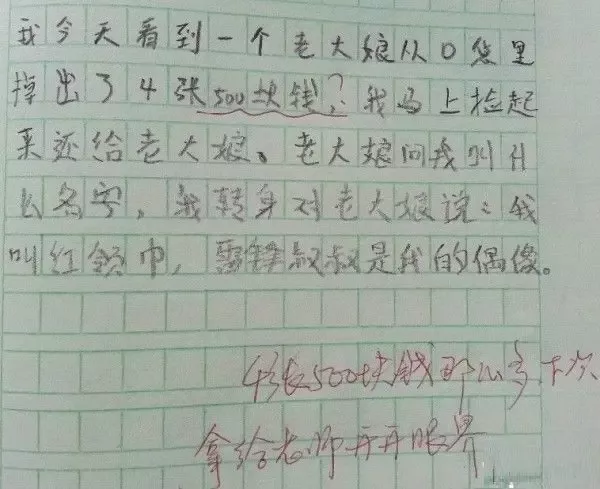 我今天看到一个老大娘从口袋里
掉出了4张500块钱?我马上捡起
来还给老大娘。老大娘问我叫什
么名字,我转身对老大娘说:我
叫红领巾,雷锋叔叔是我的偶像。
4张500块钱那么多下次
拿给老师开开眼界